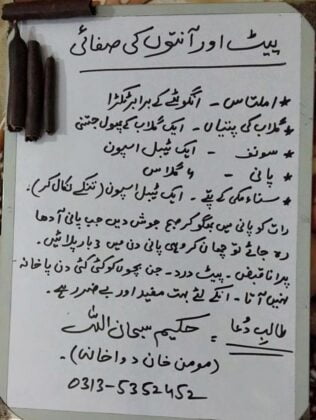 پیٹ اور آنتوں کی صفائی
* املتاس - انگوٹھے کے برابر ٹکڑا
* گلاب کی پتیاں - ایک گلاب کے پھول جتنی
* سونف - ایک ٹیبل اسپون
* پانی - ۴ گلاس
* سناء مکی کے پتے - ایک ٹیبل اسپون (تنکے نکال کر).
رات کو پانی میں بھگو کر صبح جوش دیں جب پانی آدھا
رہ جائے تو چھان کر وہی پانی دن میں ۳ بار پلائیں.
پرانا قبض - پیٹ درد - جن بچوں کو کئی کئی دن پاخانہ
نہیں آتا - انکے لئے بہت مفید اور بے ضرر ہے.
طالب دُعا = حکیم سبحان اللہ
(مومن خان دواخانہ).
0313-5352452